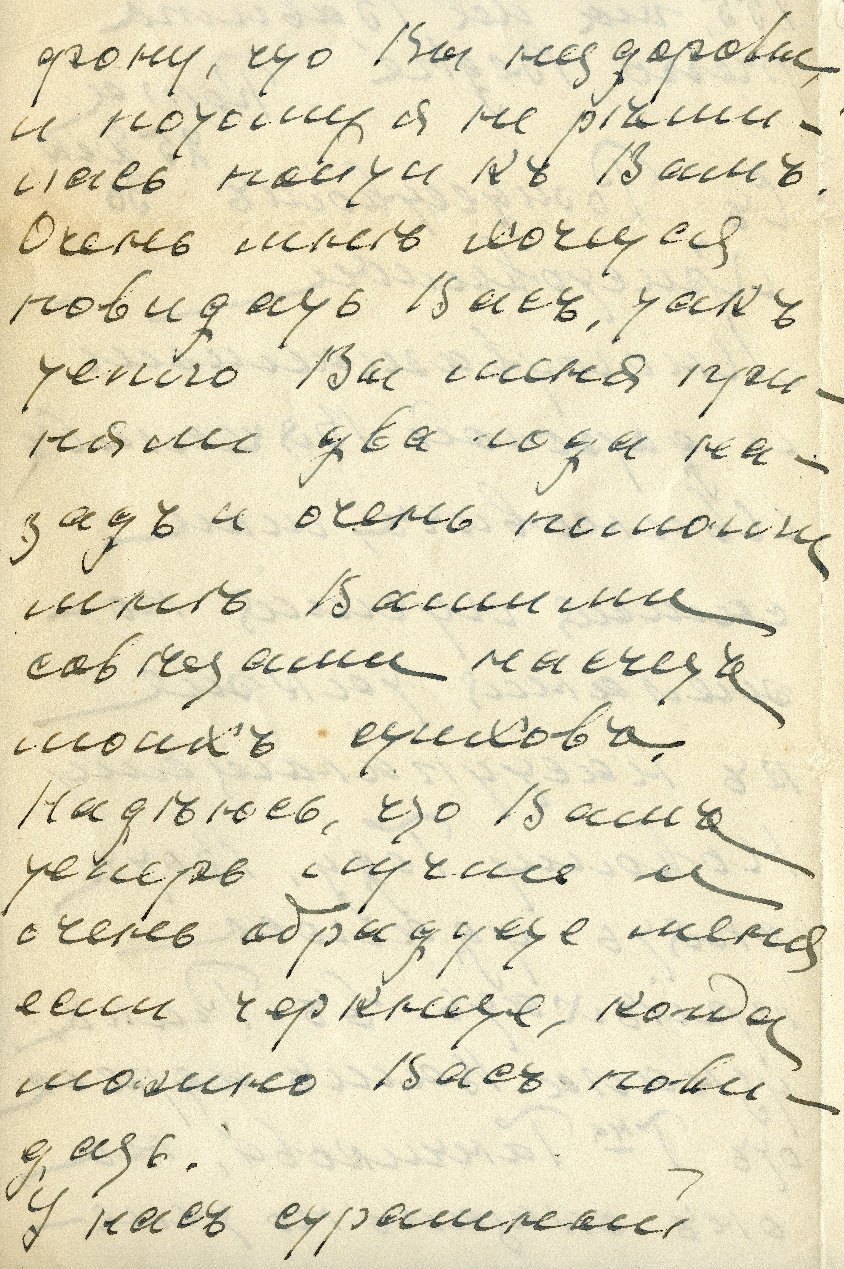 фону, что Вы нездоровы,
и потому я не рѣши-
лась пойти къ Вамъ.
Очень мнѣ хочется
повидать Васъ, такъ
тепло Вы меня при-
няли два года на-
задъ и очень помогли
мнѣ Вашими
совѣтами насчетъ
моихъ стиховъ.
Надѣюсь, что Вамъ
теперь лучше и
очень обрадуете меня
если черкнете, когда
можно Васъ пови-
дать.
У насъ страшный